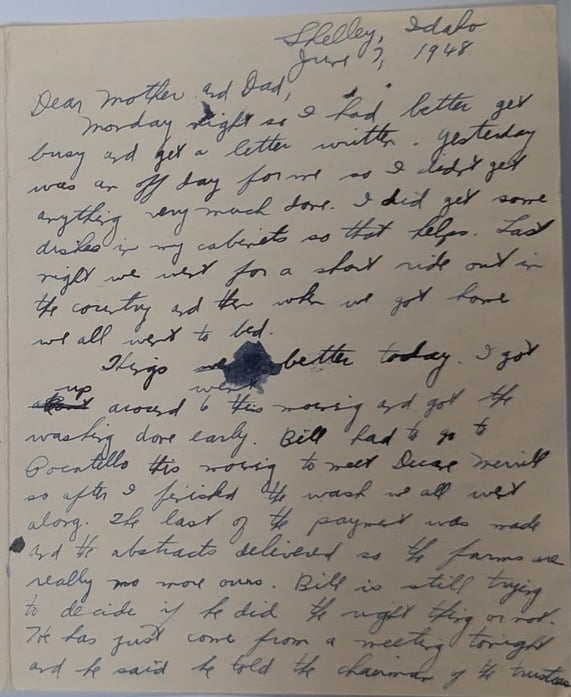 Shelley, Idaho
June 7, 1948
Dear Mother and Dad,
Monday night so I had better get
busy and get a letter written. Yesterday
was an off day for me so I didn't get
anything very much done. I did get some
dishes in my cabinets so that helps. Last
night we went for a short ride out in
the country and then when we got home
we all went to bed.
Things went better today. I got
up around 6 this morning and got the
washing done early. Bill had to go to
Pocatello this morning to meet Duane Merrill
so after I finished the wash we all went
along. The last of the payment was made
and the abstracts delivered so the farms are
really no more ours. Bill is still trying
to decide if he did the right thing or not.
He has just come from a meeting tonight
and he said he told the chairman of the trustees